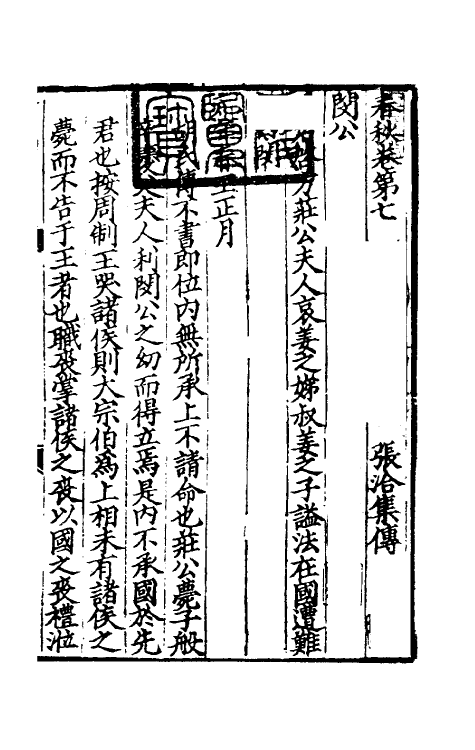 春秋卷第七　張洽集傳
閔公
名啓方莊公夫人哀姜之娣叔姜之子謚法在國遭難
王正月
胡氏傳不書即位內無所承上不請命也莊公薨子般
夫人利閔公之幼而得立焉是內不承國於先
君也按周制王哭諸侯則大宗伯為上相未有諸侯之
薨而不告于王者也職喪掌諸侯之喪以國之喪禮涖